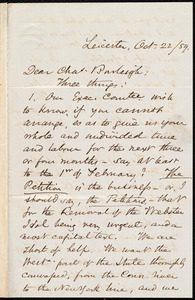 Leicester, Oct. 22/59.
Dear Chas. Burleigh;
Three things:
1. Our Exec. Comtee wish
to know, if you cannot
arrange, so as to give us your
whole and undivided time
and labour for the next three
or four months - say at least
to the 1st of February? The
Petition is the business - or, I
should say, the Petitions - that
for the Removal of the Webster
Idol being very urgent, and a
most capital text. We are
short of help. We want the
West part of the State thoroughly
canvassed, from the Conn. River
to the New York line, and we